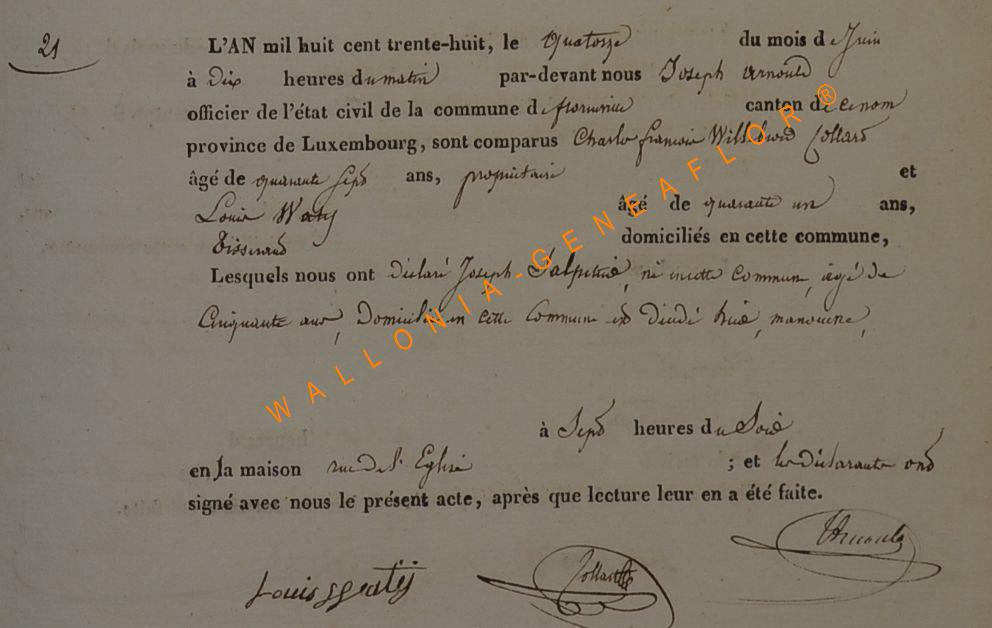 21
L'AN mil huit cent trente-huit, le quatorze du mois de Juin
à Dix heures du matin par-devant nous Joseph Arnould
officier de l'état civil de la commune de florenville canton de ce nom
province de Luxembourg, sont comparus Charle françois Willebrord Collard
âgé de quarante sept ans, propriétaire et
Louis Watÿ âgé de quarante un ans,
Tisserand domiciliés en cette commune,
Lesquels nous ont déclaré Joseph Salpétrié, né in cette commune, agé de
Cinquante ans, Domicilié en cette Commune est Décédé hier, manouvrier,
à Sept heures du Soir
en la maison rue de l'Eglise ; et les déclarants ont
signé avec nous le présent acte, après que lecture leur en a été faite.
Arnould
Louis Watÿ Collard
WALLONIA-GENEAFLOR ®